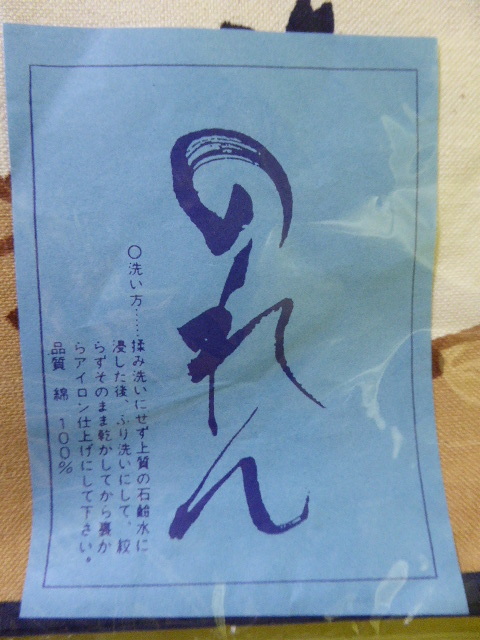 のれん
○洗い方……揉み洗いにせず上質の石鹼水に
浸した後、ふり洗いにして、絞
らずそのまま乾かしてから裏か
らアイロン仕上げにして下さい。
品質 綿 100%